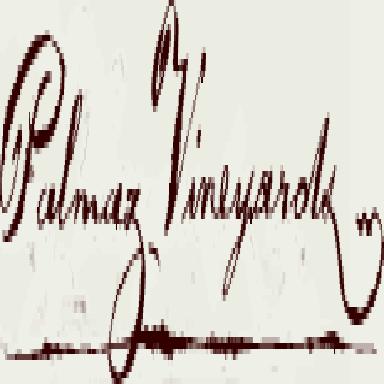 Palmaz Vineyards